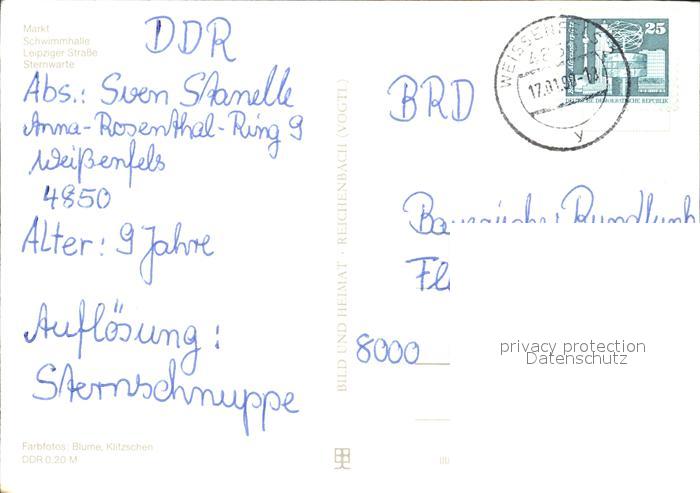 Markt
Schwimmhalle
Leipziger Straße
Sternwarte
DDR
Abs.: Sven Stanelle
Anna-Rosenthal-Ring 9
Weißenfels
4850
Alter: 9 Jahre
Auflösung:
Sternschnuppe
Farbfotos: Blume, Klitzschen
DDR 0,20 M
BILD UND HEIMAT · REICHENBACH (VOGTL)
WEISSENFELS
17.01.90
y
25
DEUTSCHE DEMOKRATISCHE REPUBLIK
BRD
Bayrischer Rundfunk
8000
privacy protection
Datenschutz